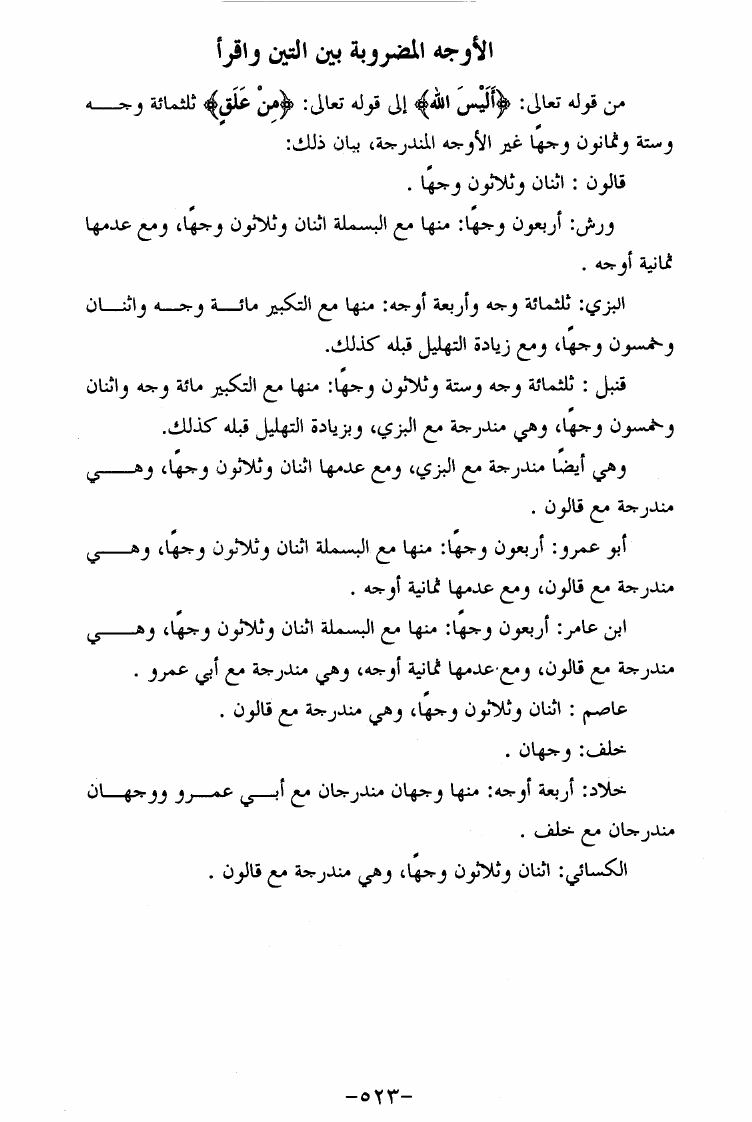 الأوجه المضروبة بين التين واقرأ
من قوله تعالى: ﴿أَلَيْسَ الله﴾ إلى قوله تعالى: ﴿مِنْ عَلَقٍ﴾ ثلثمائة وجـــه
وستة وثمانون وجهًا غير الأوجه المندرجة، بيان ذلك:
قالون : اثنان وثلاثون وجهًا .
ورش: أربعون وجهًا: منها مع البسملة اثنان وثلاثون وجهًا، ومع عدمها
ثمانية أوجه .
البزي: ثلثمائة وجه وأربعة أوجه: منها مع التكبير مائـــة وجـــه واثنـــان
وخمسون وجهًا، ومع زيادة التهليل قبله كذلك.
قنبل : ثلثمائة وجه وستة وثلاثون وجهًا: منها مع التكبير مائة وجه واثنان
وخمسون وجهًا، وهي مندرجة مع البزي، وبزيادة التهليل قبله كذلك.
وهي أيضًا مندرجة مع البزي، ومع عدمها اثنان وثلاثون وجهًا، وهـــي
مندرجة مع قالون .
أبو عمرو: أربعون وجهًا: منها مع البسملة اثنان وثلاثون وجهًا، وهـــي
مندرجة مع قالون، ومع عدمها ثمانية أوجه .
ابن عامر: أربعون وجهًا: منها مع البسملة اثنان وثلاثون وجهًا، وهـــي
مندرجة مع قالون، ومع عدمها ثمانية أوجه، وهي مندرجة مع أبي عمرو .
عاصم : اثنان وثلاثون وجهًا، وهي مندرجة مع قالون .
خلف: وجهان .
خلاد: أربعة أوجه: منها وجهان مندرجان مع أبـــي عمـــرو ووجهـــان
مندرجان مع خلف .
الكسائي: اثنان وثلاثون وجهًا، وهي مندرجة مع قالون .
-٥٢٣-